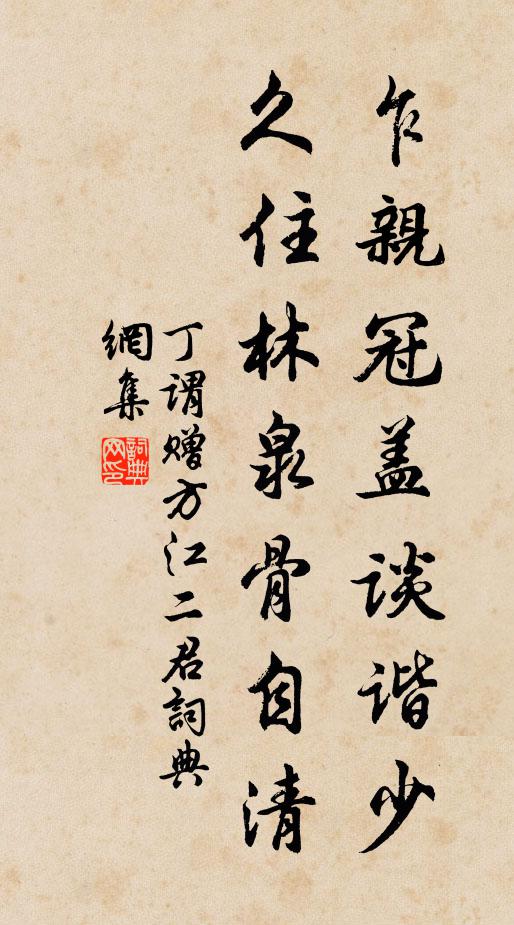 乍親冠盖談谐少
久住林泉骨自清
丁謂赠方江二君詞典
網集
詞典网印